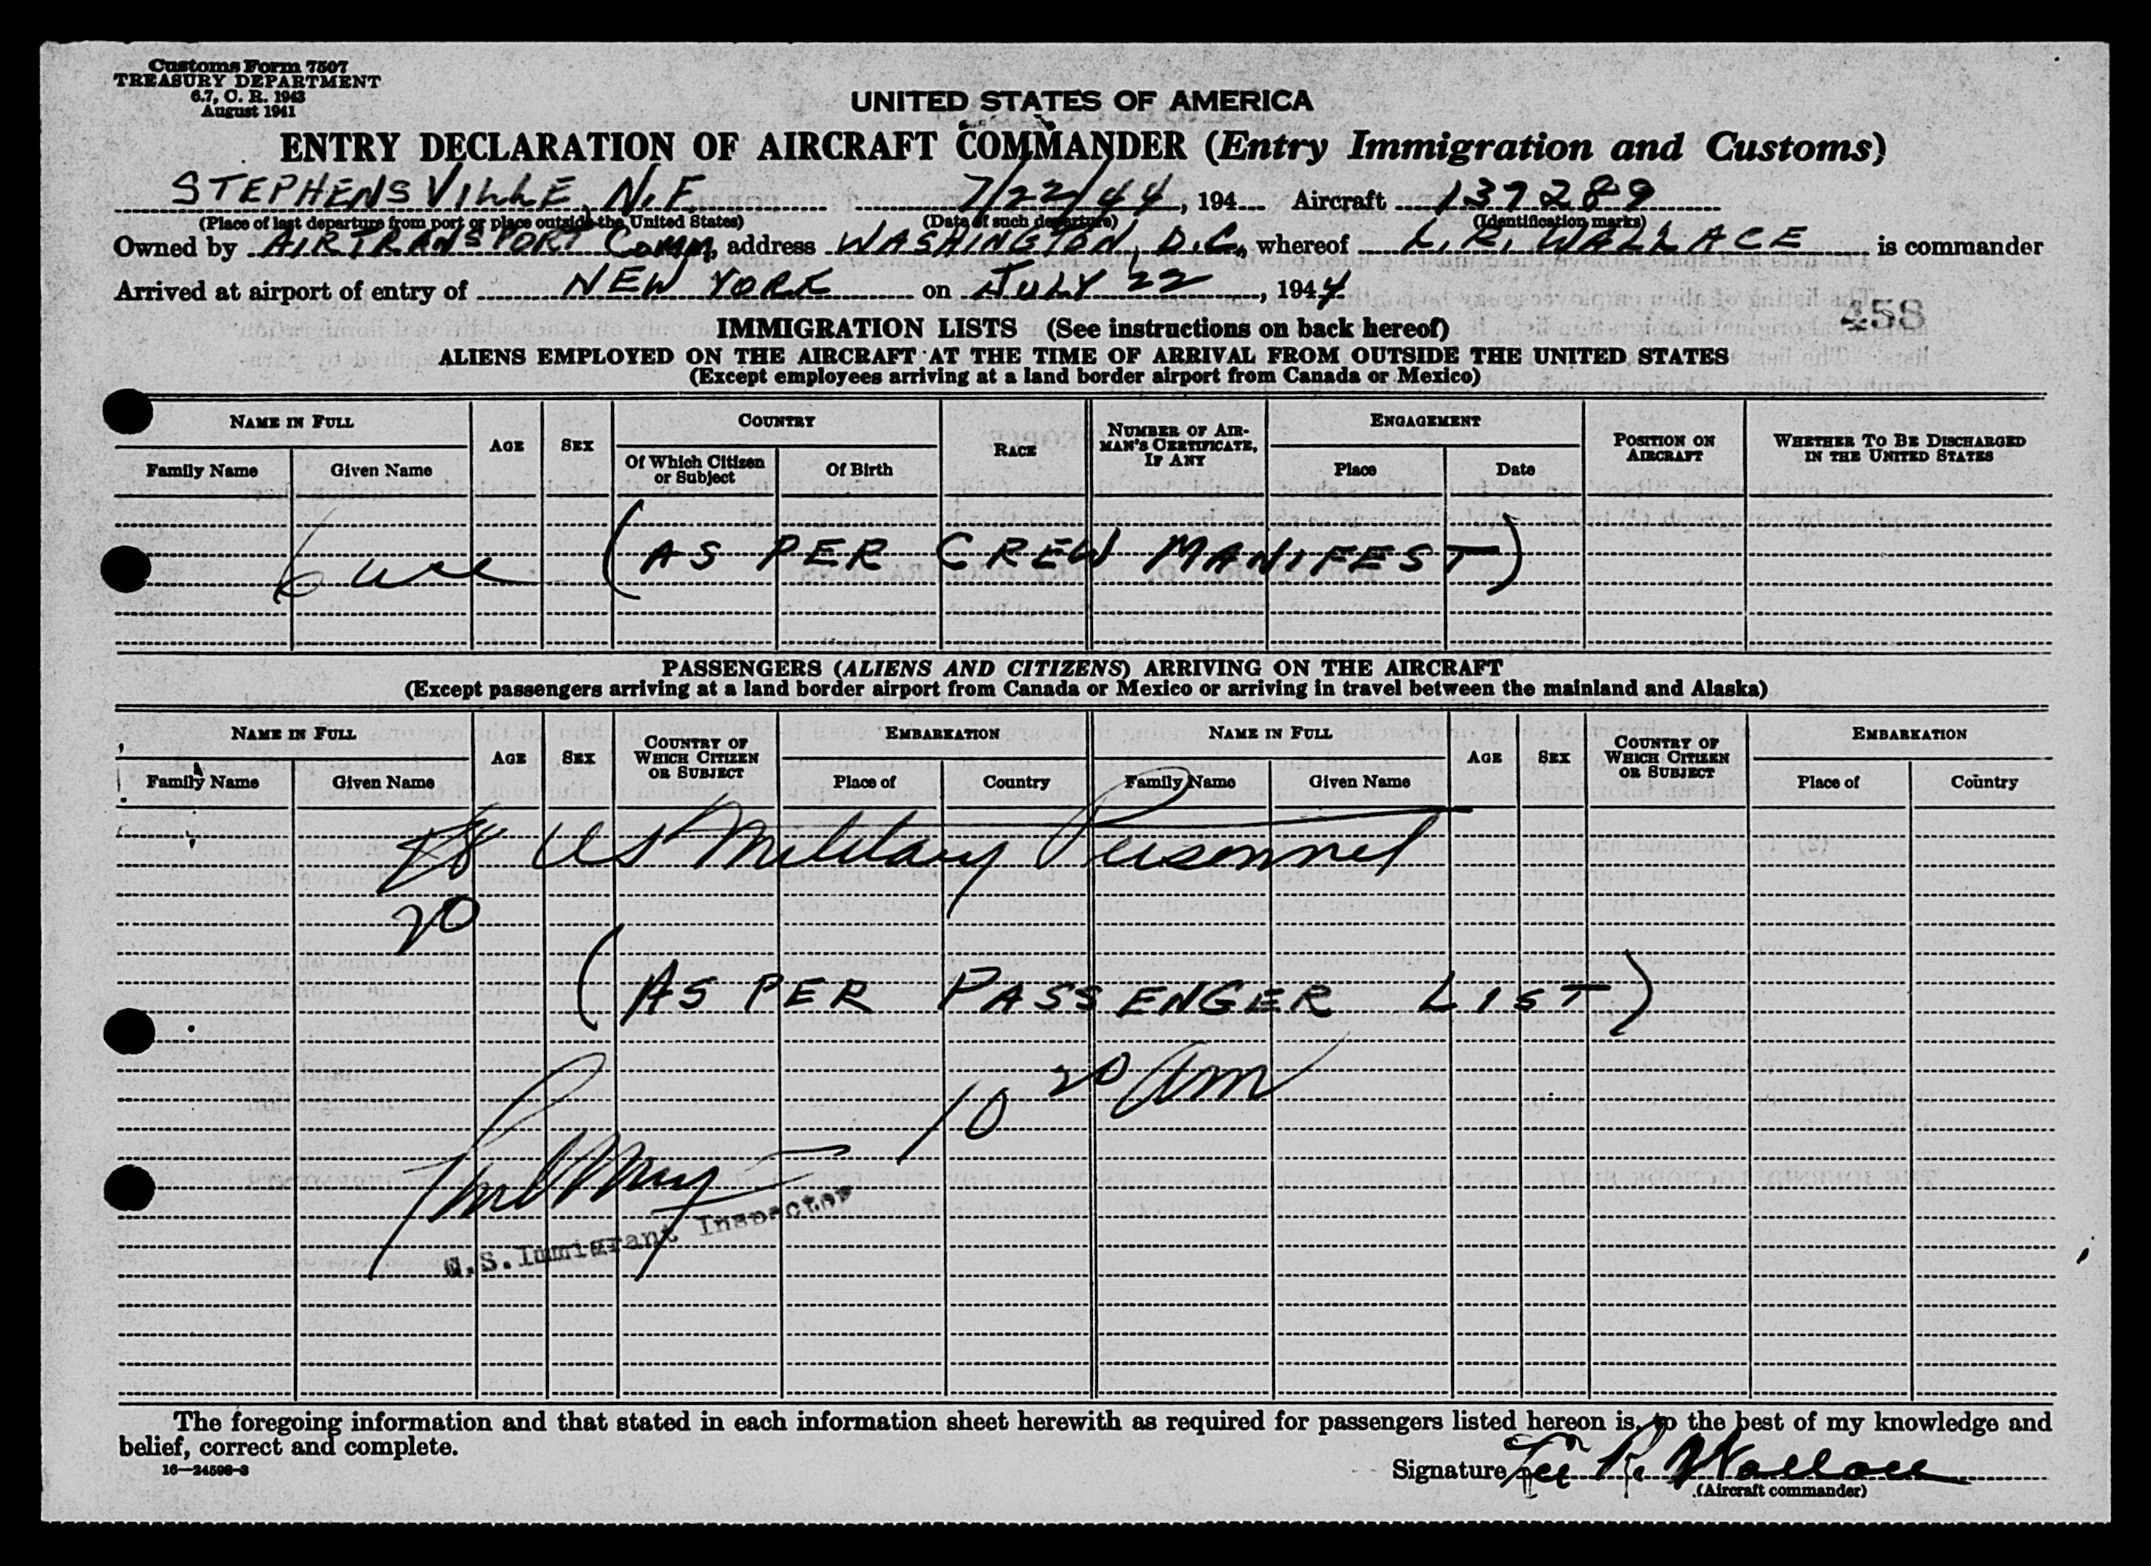 Customs Form 7507
TREASURY DEPARTMENT
6.7, C. R. 1943
August 1941
UNITED STATES OF AMERICA
ENTRY DECLARATION OF AIRCRAFT COMMANDER (Entry Immigration and Customs)
STEPHENSVILLE, N.F. 7/22/44, 194 Aircraft 137289
(Place of last departure from port or place outside the United States) (Date of such departure) (Identification marks)
Owned by AIR TRANSPORT COMM, address WASHINGTON, D.C., whereof L. R. WALLACE is commander
Arrived at airport of entry of NEW YORK on JULY 22, 1944
458
IMMIGRATION LISTS (See instructions on back hereof)
ALIENS EMPLOYED ON THE AIRCRAFT AT THE TIME OF ARRIVAL FROM OUTSIDE THE UNITED STATES
(Except employees arriving at a land border airport from Canada or Mexico)
NAME IN FULL AGE SEX COUNTRY RACE NUMBER OF AIRMAN'S CERTIFICATE, IF ANY ENGAGEMENT POSITION ON AIRCRAFT WHETHER TO BE DISCHARGED IN THE UNITED STATES
Family Name Given Name Of Which Citizen or Subject Of Birth Place Date
6 (AS PER CREW MANIFEST)
PASSENGERS (ALIENS AND CITIZENS) ARRIVING ON THE AIRCRAFT
(Except passengers arriving at a land border airport from Canada or Mexico or arriving in travel between the mainland and Alaska)
NAME IN FULL AGE SEX COUNTRY OF WHICH CITIZEN OR SUBJECT EMBARKATION NAME IN FULL AGE SEX COUNTRY OF WHICH CITIZEN OR SUBJECT EMBARKATION
Family Name Given Name Place of Country Family Name Given Name Place of Country
US Military Personnel
20
(AS PER PASSENGER LIST)
10 20 am
U.S. Immigrant Inspector
The foregoing information and that stated in each information sheet herewith as required for passengers listed hereon is, to the best of my knowledge and
belief, correct and complete.
16—24598-3
Signature Lee R. Wallace
(Aircraft commander)